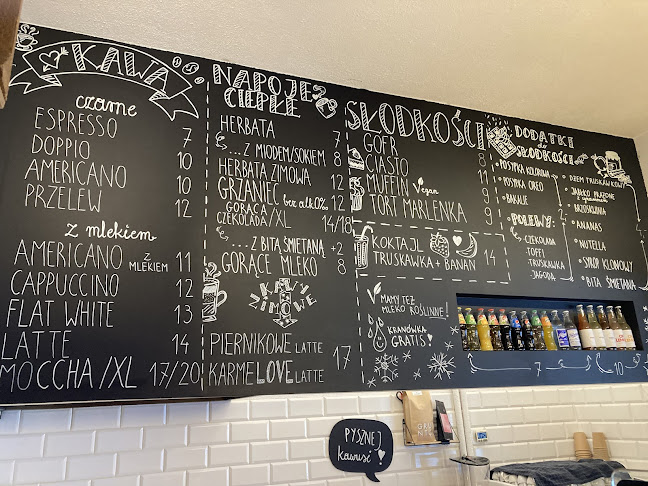 KAWA
czarne
ESPRESSO 7
DOPPIO 10
AMERICANO 10
PRZELEW 12
z mlekiem
AMERICANO Z MLEKIEM 11
CAPPUCCINO 12
FLAT WHITE 13
LATTE 14
MOCCHA/XL 17/20
NAPOJE
CIEPŁE
HERBATA 7
...Z MIODEM/SOKIEM 8
HERBATA ZIMOWA 12
GRZANIEC bez alk.0% 12
GORĄCA
CZEKOLADA/XL 14/18
...Z BITĄ ŚMIETANĄ +2
GORĄCE MLEKO 8
KAWY
ZIMOWE
PIERNIKOWE LATTE 17
KARMELOVE LATTE
SŁODKOŚCI
GOFR 8
CIASTO 11
MUFFIN Vegan 9
TORT MARLENKA 9
KOKTAJL
TRUSKAWKA + BANAN 14
MAMY TEŻ
MLEKO ROŚLINNE!
KRANÓWKA
GRATIS!
DODATKI
do
SŁODKOŚCI
POSYPKA KOLOROWA
POSYPKA OREO
BAKALIE
POLEWY:
CZEKOLADA
TOFFI
TRUSKAWKA
JAGODA
DŻEM TRUSKAWKOWY
JABŁKO PRAŻONE
z cynamonem
BRZOSKWINIA
ANANAS
NUTELLA
SYROP KLONOWY
BITA ŚMIETANA
7
10
PYSZNEJ
kawusi!